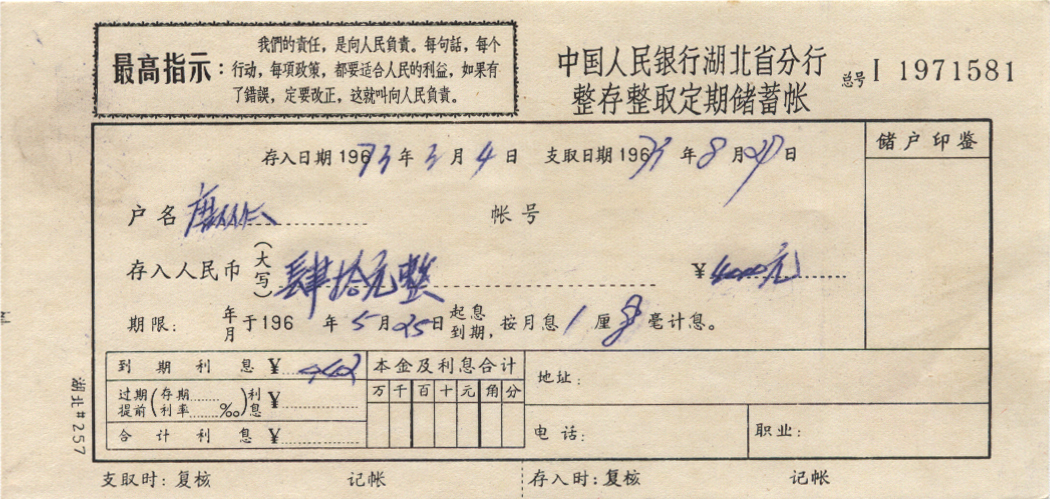 最高指示：
我們的責任，是向人民負責。每句話，每个
行动，每項政策，都要适合人民的利益，如果有
了錯誤，定要改正，这就叫向人民負責。
中国人民银行湖北省分行
整存整取定期储蓄帐
总号 I 1971581
存入日期 196 73 年 3 月 4 日 支取日期 196 73 年 8 月 日
储户印鉴
户名 唐 帐号
存入人民币（大写）肆拾元整 ¥ 元
期限： 年月 于196 年 5 月 25 日 起息到期，按月息 1 厘 8 毫计息。
到期利息 ¥ 442
本金及利息合计
万 千 百 十 元 角 分
过期提前（存期……利率……‰）利息 ¥
合计利息 ¥
地址：
电话：
职业：
支取时：复核 记帐
存入时：复核 记帐
湖北#257